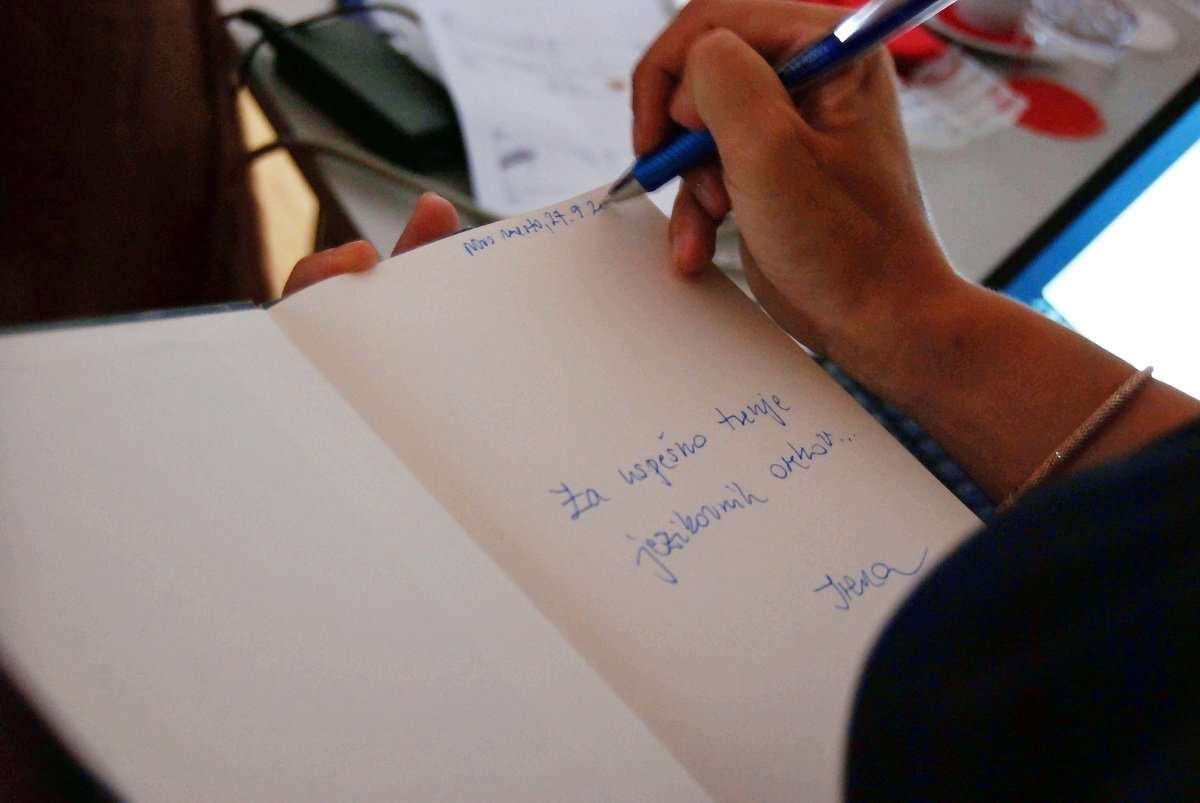 Novo mesto, 27. 9. 20
Za uspešno trenje
jezikovnih orehov...
Irena